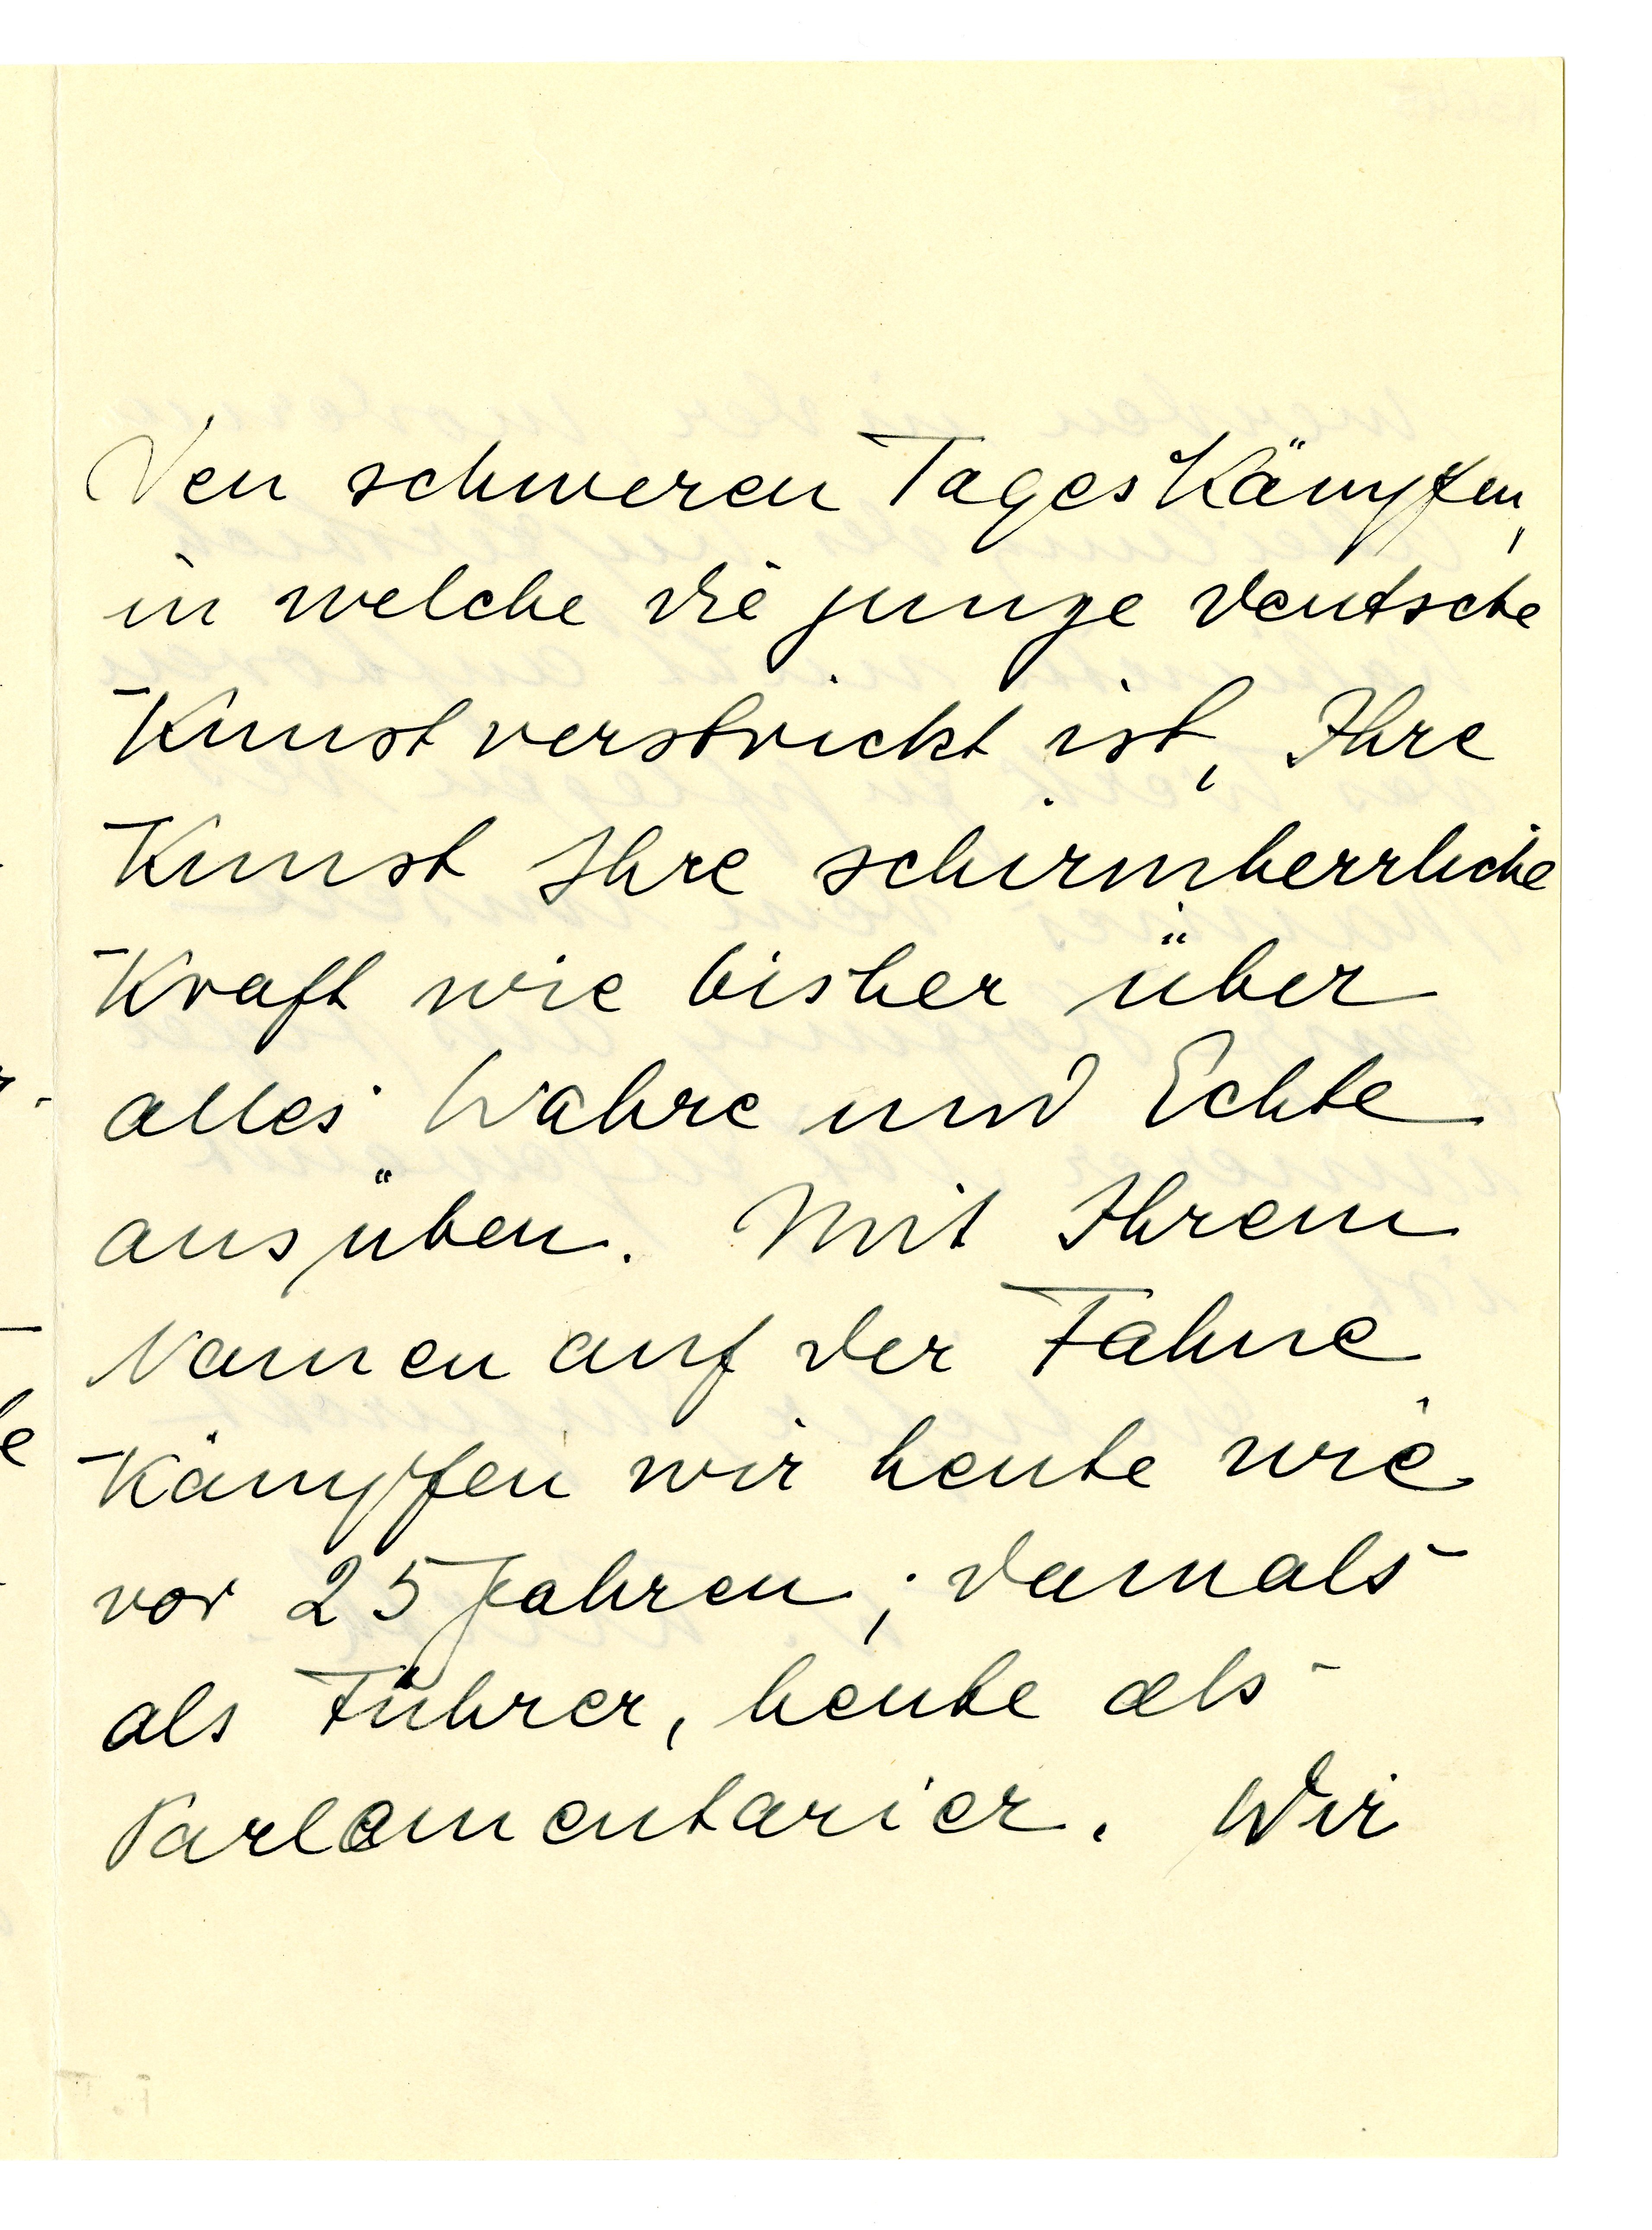 Den schweren Tageskämpfen,
in welche die junge deutsche
Kunst verstrickt ist, Ihre
Kunst Ihre schirmherrliche
Kraft wie bisher über
alles Wahre und Echte
ausüben. Mit Ihrem
Namen auf der Fahne
kämpfen wir heute wie
vor 25 Jahren; damals
als Führer, heute als
Parlamentarier. Wir